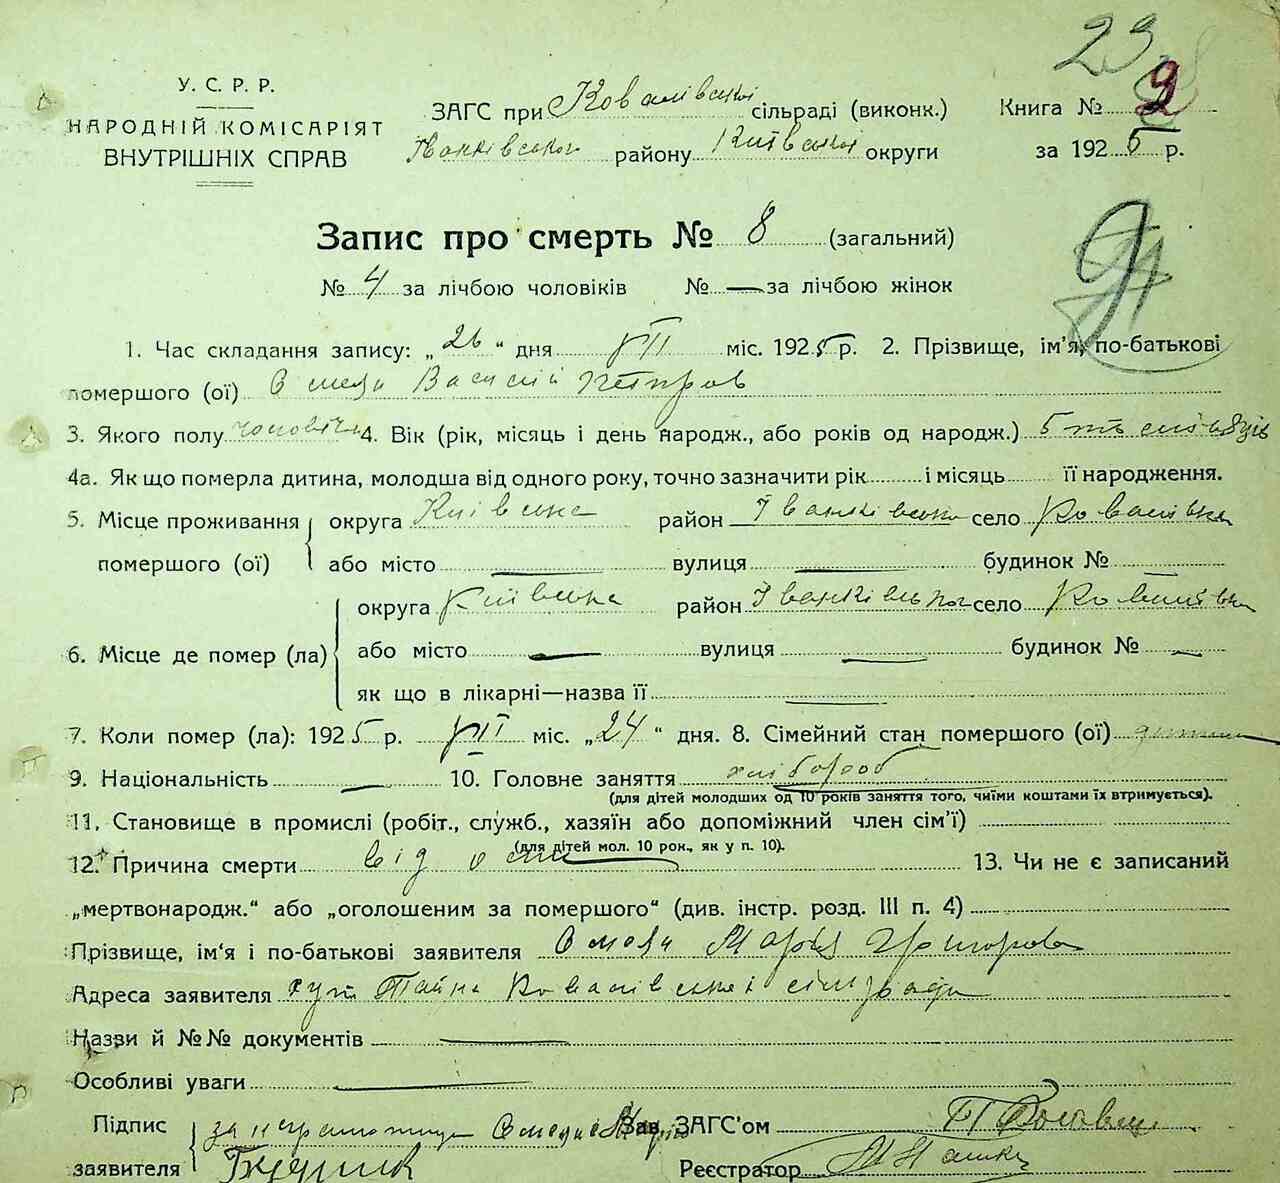 23
У. С. Р. Р.
НАРОДНІЙ КОМІСАРІЯТ
ВНУТРІШНІХ СПРАВ
ЗАГС при Ковалівській сільраді (виконк.)
Іванківського району Київської округи
Книга № 2
за 1925 р.
Запис про смерть № 8 (загальний)
№ 4 за лічбою чоловіків № — за лічбою жінок
1. Час складання запису: „26“ дня VII міс. 1925 р. 2. Прізвище, ім'я, по-батькові
помершого (ої) Василій
3. Якого полу 4. Вік (рік, місяць і день народж., або років од народж.) 5
4а. Як що померла дитина, молодша від одного року, точно зазначити рік і місяць її народження.
5. Місце проживання помершого (ої) округа Київська район Іванківський село Ковалівка
або місто — вулиця — будинок № —
6. Місце де помер (ла) округа Київська район село Ковалівка
або місто — вулиця — будинок № —
як що в лікарні—назва її —
7. Коли помер (ла): 1925 р. VII міс. „24“ дня. 8. Сімейний стан помершого (ої)
9. Національність — 10. Головне заняття хлібороб
(для дітей молодших од 10 років заняття того, чиїми коштами їх втримується).
11. Становище в промислі (робіт., служб., хазяїн або допоміжний член сім'ї)
(для дітей мол. 10 рок., як у п. 10).
12. Причина смерти від 13. Чи не є записаний
„мертвонародж.“ або „оголошеним за помершого“ (див. інстр. розд. III п. 4)
Прізвище, ім'я і по-батькові заявителя Марія
Адреса заявителя хут Ковалівської сільради
Назви й №№ документів —
Особливі уваги —
Підпис заявителя за Зав. ЗАГС'ом
Реєстратор